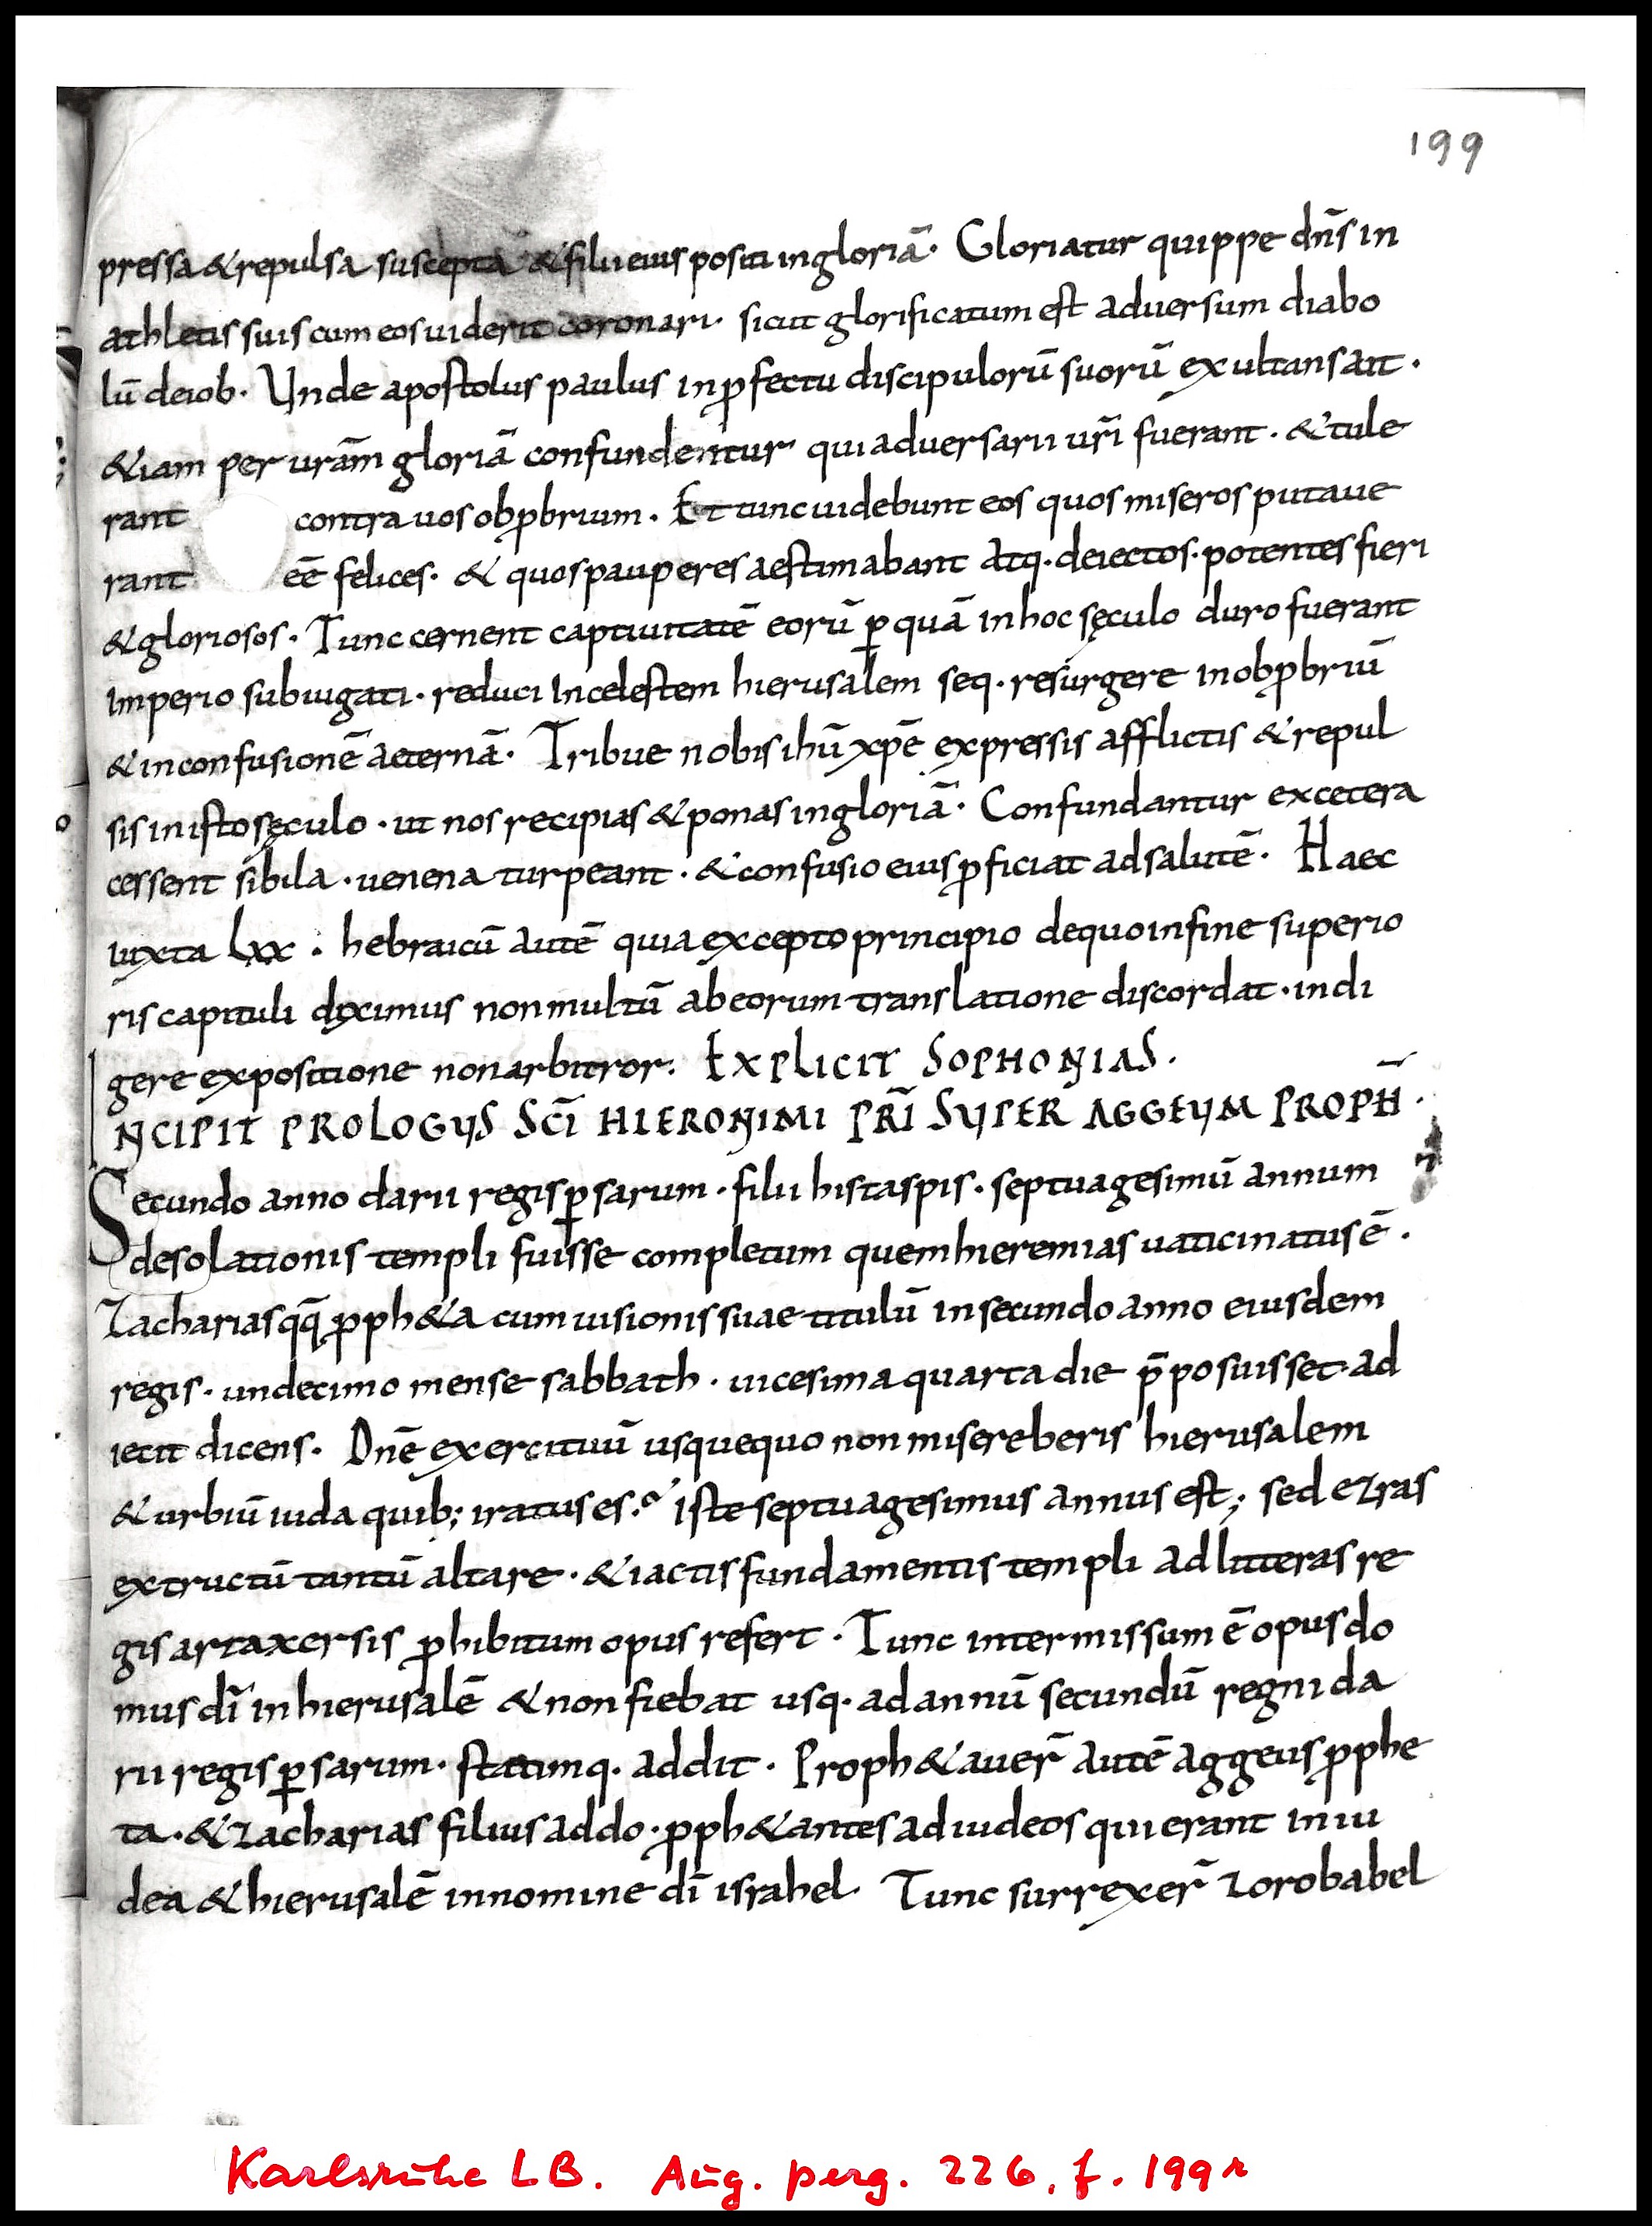 199
pressa & repulsa suscepta & filii eius positi in gloriā. Gloriatur quippe dn̄s in
athletis suis cum eos uiderit coronari. sicut glorificatum est aduersum diabo
lū de iob. Unde apostolus paulus in ꝓfectu discipulorū suorū exultans ait.
&iam per urām gloriā confundentur qui aduersarii ur̄i fuerant. & tule
rant contra uos obꝓbrium. Et tunc uidebunt eos quos miseros putaue
rant eē felices. & quos pauperes aestimabant atq. deiectos. potentes fieri
& gloriosos. Tunc cernent captiuitatē eorū ꝑ quā in hoc sęculo duro fuerant
imperio subiugati. reduci in celestem hierusalem seq. resurgere in obꝓbriū
& in confusionē aeternā. Tribue nobis ihū xpē expressis afflictis & repul
sis in isto sęculo. ut nos recipias & ponas in gloriā. Confundantur excetera
cessent sibila. uenena turpeant. & confusio eius ꝓficiat ad salutē. Haec
iuxta lxx. hebraicū autē quia excepto principio de quo in fine superio
ris capituli diximus non multū ab eorum translatione discordat. indi
gere expositione non arbitror. EXPLICIT SOPHONIAS.
INCIPIT PROLOGUS SC̄I HIERONIMI PR̄I SUPER AGGEUM PROPH̄.
Secundo anno darii regis ꝑsarum. filii histaspis. septuagesimū annum
desolationis templi fuisse completum quem hieremias uaticinatus ē.
Zacharias qq̄ ꝓph&a cum uisionis suae titulū in secundo anno eiusdem
regis. undecimo mense sabbath. uicesima quarta die p̄posuisset. ad
iecit dicens. Dnē exercituū usquequo non misereberis hierusalem
& urbiū iuda quib; iratus es? iste septuagesimus annus est; sed ezras
extructū tantū altare. & iactis fundamentis templi ad litteras re
gis artaxersis ꝓhibitum opus refert. Tunc intermissum ē opus do
mus dī in hierusalē & non fiebat usq. ad annū secundū regni da
rii regis ꝑsarum. statimq. addit. Proph&auer̄ autē aggeus ꝓphe
ta. & zacharias filius addo. ꝓph&antes ad iudeos qui erant in iu
dea & hierusalē in nomine dī israhel. Tunc surrexer̄ zorobabel
Karlsruhe LB. Aug. perg. 226, f. 199r